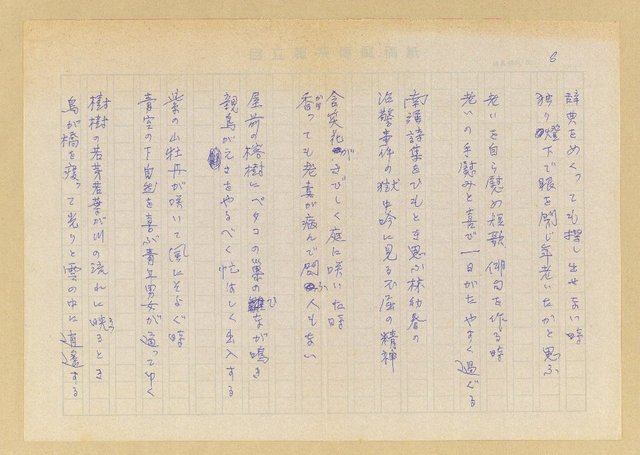 6
辞典をめくっても探し出せない時
独り燈下で眼を閉じ年老いたかと思ふ
老いを自ら慰め短歌 俳句を作る時
老いの手慰みと喜び一日がたやすく過ぐる
南溟詩集をひもとき思ふ林幼春の
治警事件の獄中吟に見る不屈の精神
含笑花がさびしく庭に咲いた時
香っても老妻が病んで問ふ人もない
屋前の榕樹にペタコの巣のひなが鳴き
親鳥がえさをやるべく忙はしく出入する
紫の山牡丹が咲いて風にそよぐ時
青空の下自然を喜ぶ青年男女が通ってゆく
樹樹の若芽若葉が川の流れに映るとき
鳥が橋を渡って光りと雲の中に逍遥する